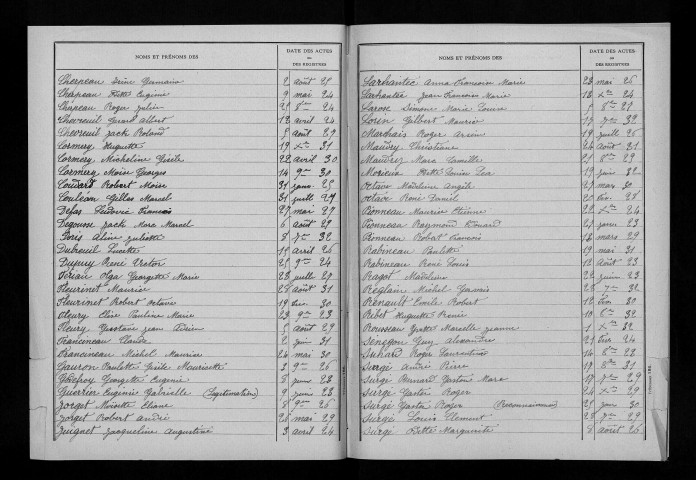 NOMS ET PRÉNOMS DES
DATE DES ACTES
OU
DES REGISTRES
Cherpeau Irène Germaine 2 août 25
Chapeau Yvette Eugénie 9 mai 24
Chapeau Roger Julien 25 8bre 24
Chevreuil Gérard Albert 12 avril 24
Chevreuil Jack Roland 5 août 27
Cormery Huguette 19 Xbre 31
Cormery Micheline Gisèle 22 avril 30
Cormery Moïse Georges 14 9bre 30
Couvard Robert Moïse 31 janv. 25
Couléan Gilles Marcel 31 juillet 27
Defas Ludovic François 27 mai 27
Degousse Jack Marc Marcel 6 août 25
Doris Aline Juliette 8 7bre 32
Dubreuil Lucette 15 avril 26
Dupuy René Victor 25 9bre 24
Férian Olga Georgette Marie 28 juillet 25
Fleurinet Maurice 28 août 31
Fleurinet Robert Octave 19 fév. 30
Fleury Elise Pauline Marie 23 9bre 23
Fleury Gustave Jean Adrien 5 août 29
Franceneau Claude 2 juin 31
Franceneau Michel Maurice 24 mai 30
Gauron Paulette Gisèle Mauricette 3 9bre 26
Godefroy Georgette Eugénie 8 janv 28
Guerrier Eugénie Gabrielle (Légitimation) 9 janv 28
Jorget Mirette Eliane 8 7bre 26
Jorget Robert André 26 mai 29
Juignet Jacqueline Augustine 3 avril 24
NOMS ET PRÉNOMS DES
DATE DES ACTES
OU
DES REGISTRES
Larhantec Anna Françoise Marie 23 mai 26
Larhantec Jean François Marie 13 Xbre 24
Larose Simone Marie Louise 5 8bre 25
Lorin Gilbert Maurice 17 7bre 32
Marchais Roger Arsène 19 juillet 26
Maudry Christiane 24 août 31
Maudrey Marc Camille 21 8bre 29
Morieux Yvette Louise Léa 19 juin 32
Octave Madeleine Angèle 27 mars 30
Octave René Daniel 20 fév. 28
Pionneau Maurice Etienne 22 Xbre 24
Pionneau Raymond Edouard 21 janv 23
Pionneau Robert François 12 mars 29
Rabineau Paulette 19 mai 31
Rabineau René Louis 12 août 23
Ragot Madeleine 22 juin 23
Réglain Michel Germis 28 7bre 31
Renault Emile Robert 12 fév 30
Ribot Huguette Renée 10 8bre 32
Rousseau Yvette Marcelle Jeanne 1 Xbre 32
Senegon Guy Alexandre 21 fév 24
Suhard Roger Laurentin 14 8bre 23
Surgé André Pierre 17 8bre 31
Surgé Bernard Gaston Marc 17 7bre 29
Surgé Gaston Roger 24 Xbre 29
Surgé Gaston Roger (Reconnaissance) 25 janv 30
Surgé Louis Clément 28 7bre 29
Surgé Yvette Marguerite 8 août 26